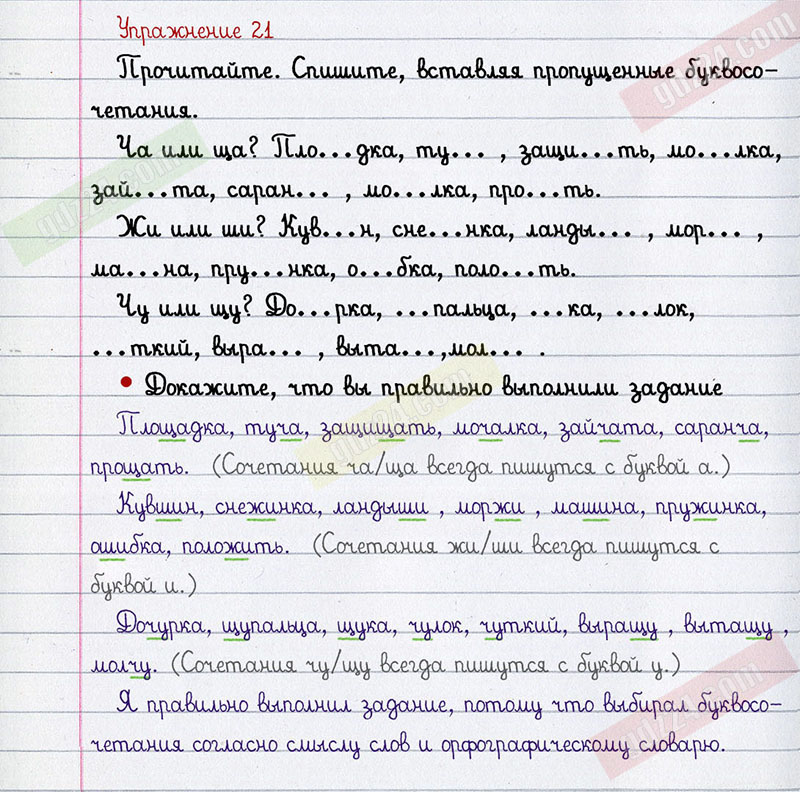 Упражнение 21
Прочитайте. Спишите, вставляя пропущенные буквосо-
четания.
Ча или ща? Пло...дка, ту... , защи...ть, мо...лка,
зай...та, саран... , мо...лка, про...ть.
Жи или ши? Кув...н, сне...нка, ланды... , мор... ,
ма...на, пру...нка, о...бка, поло...ть.
Чу или щу? До...рка, ...пальца, ...ка, ...лок,
...ткий, выра... , выта...,мол... .
• Докажите, что вы правильно выполнили задание
Площадка, туча, защищать, мочалка, зайчата, саранча,
прощать. (Сочетания ча/ща всегда пишутся с буквой а.)
Кувшин, снежинка, ландыши , моржи , машина, пружинка,
ошибка, положить. (Сочетания жи/ши всегда пишутся с
буквой и.)
Дочурка, щупальца, щука, чулок, чуткий, выращу , вытащу ,
молчу. (Сочетания чу/щу всегда пишутся с буквой у.)
Я правильно выполнил задание, потому что выбирал буквосо-
четания согласно смыслу слов и орфографическому словарю.
gdz24.com
gdz24.com
gdz24.com
gdz24.com